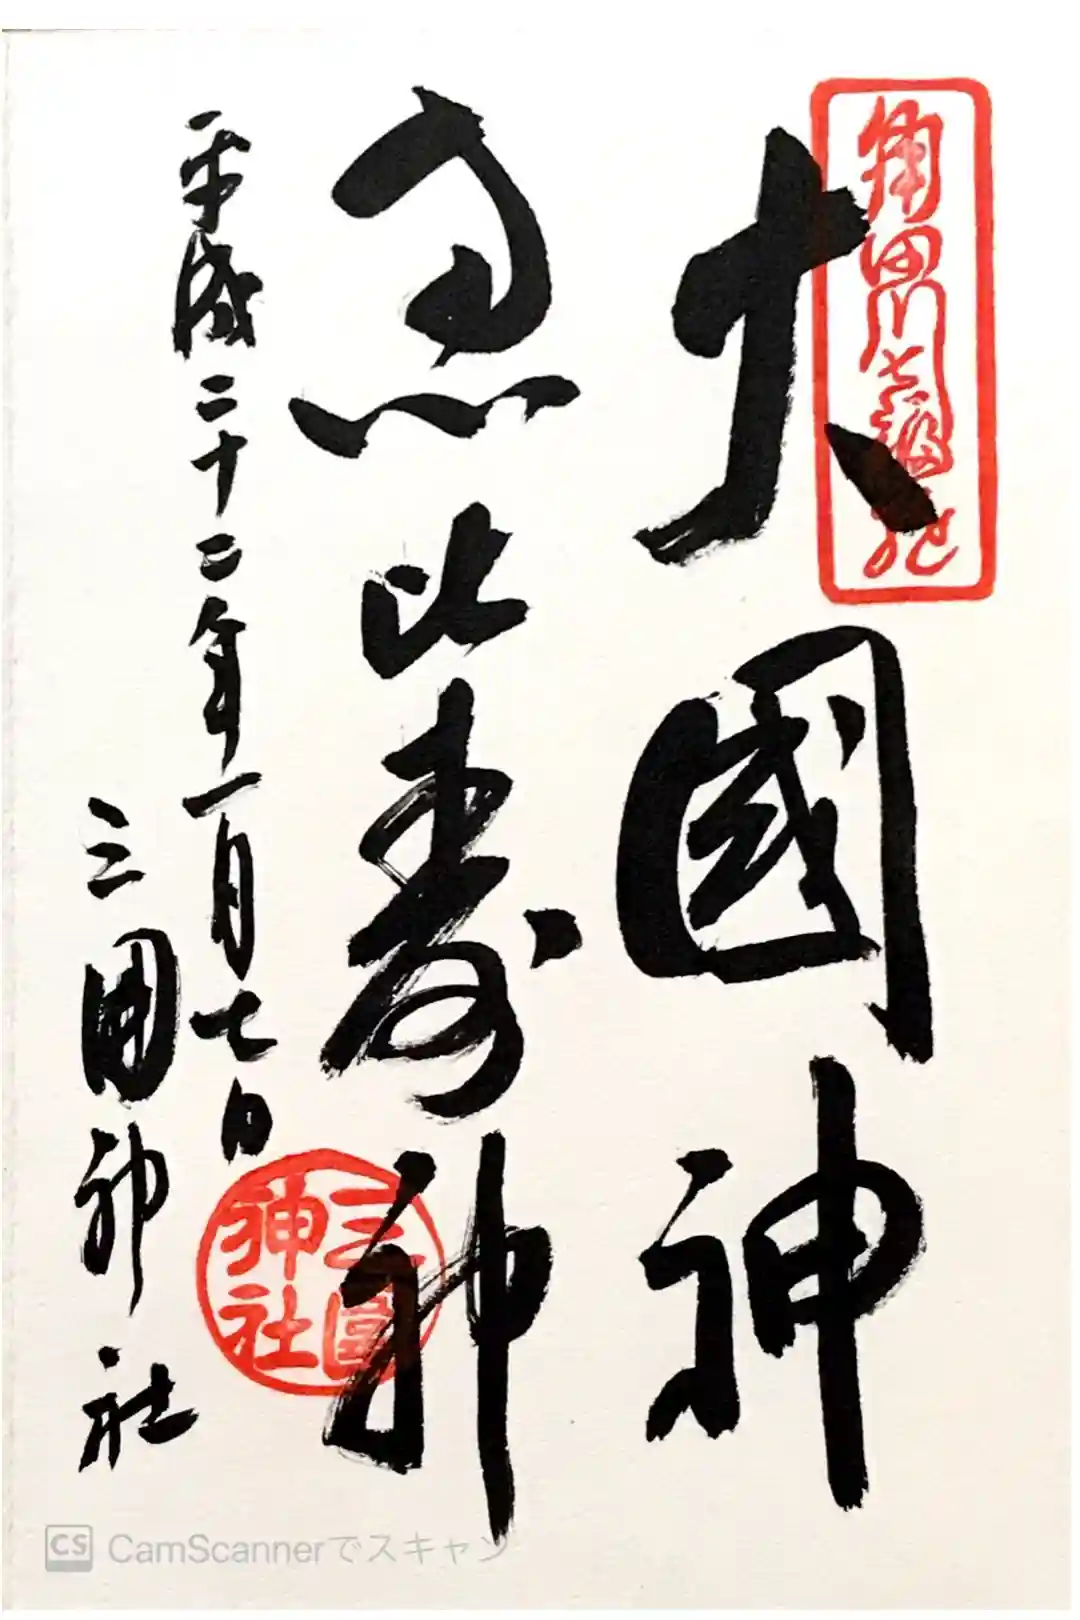 角田川七福神
大國神
恵比寿神
平成二十二年一月七日
三囲神社
三圍神社
CS CamScannerでスキャン